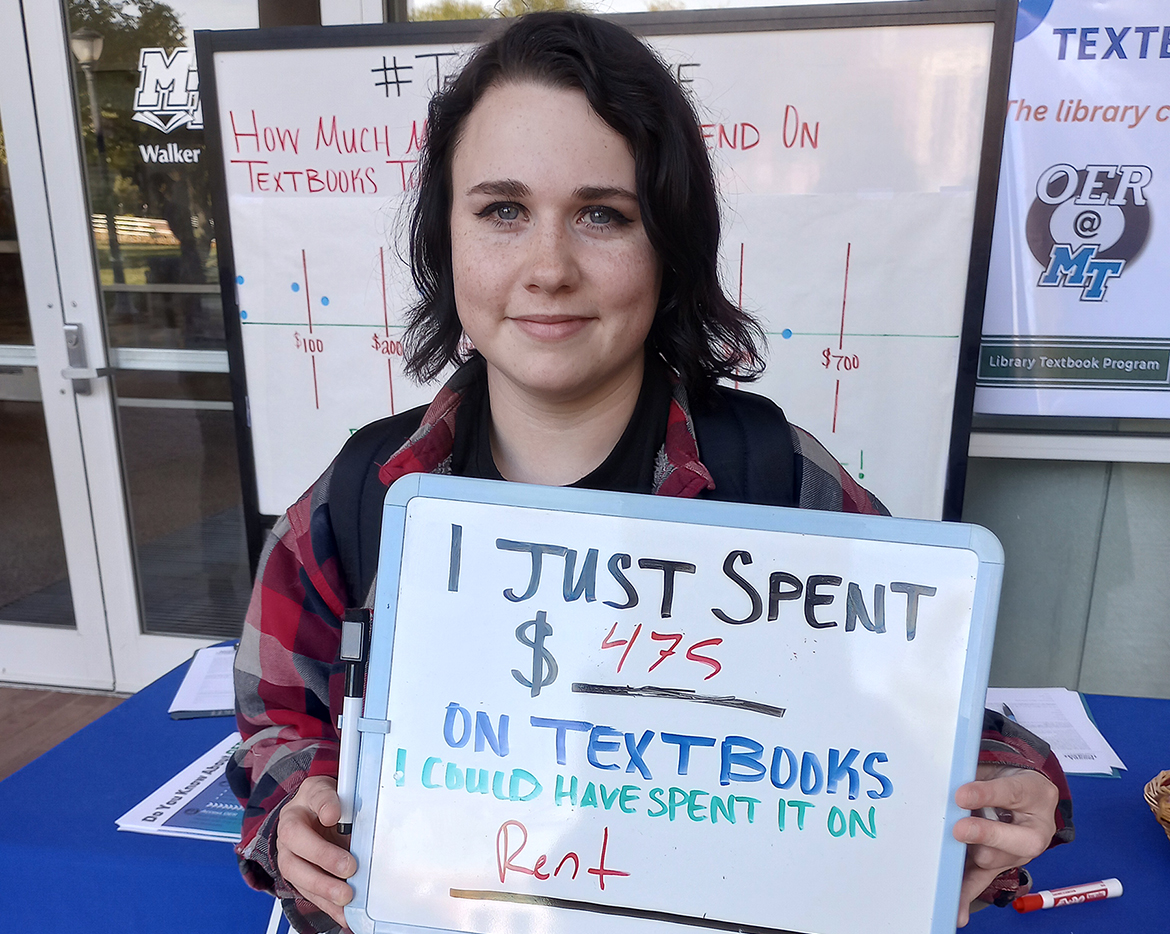 HOW MUCH
END ON
TEXTBOOKS
$100
$200
$700
MT
Walker
The library
OER
@
MT
Library Textbook Program
I JUST SPENT
$ 475
ON TEXTBOOKS
I COULD HAVE SPENT IT ON
Rent
Do You Know About